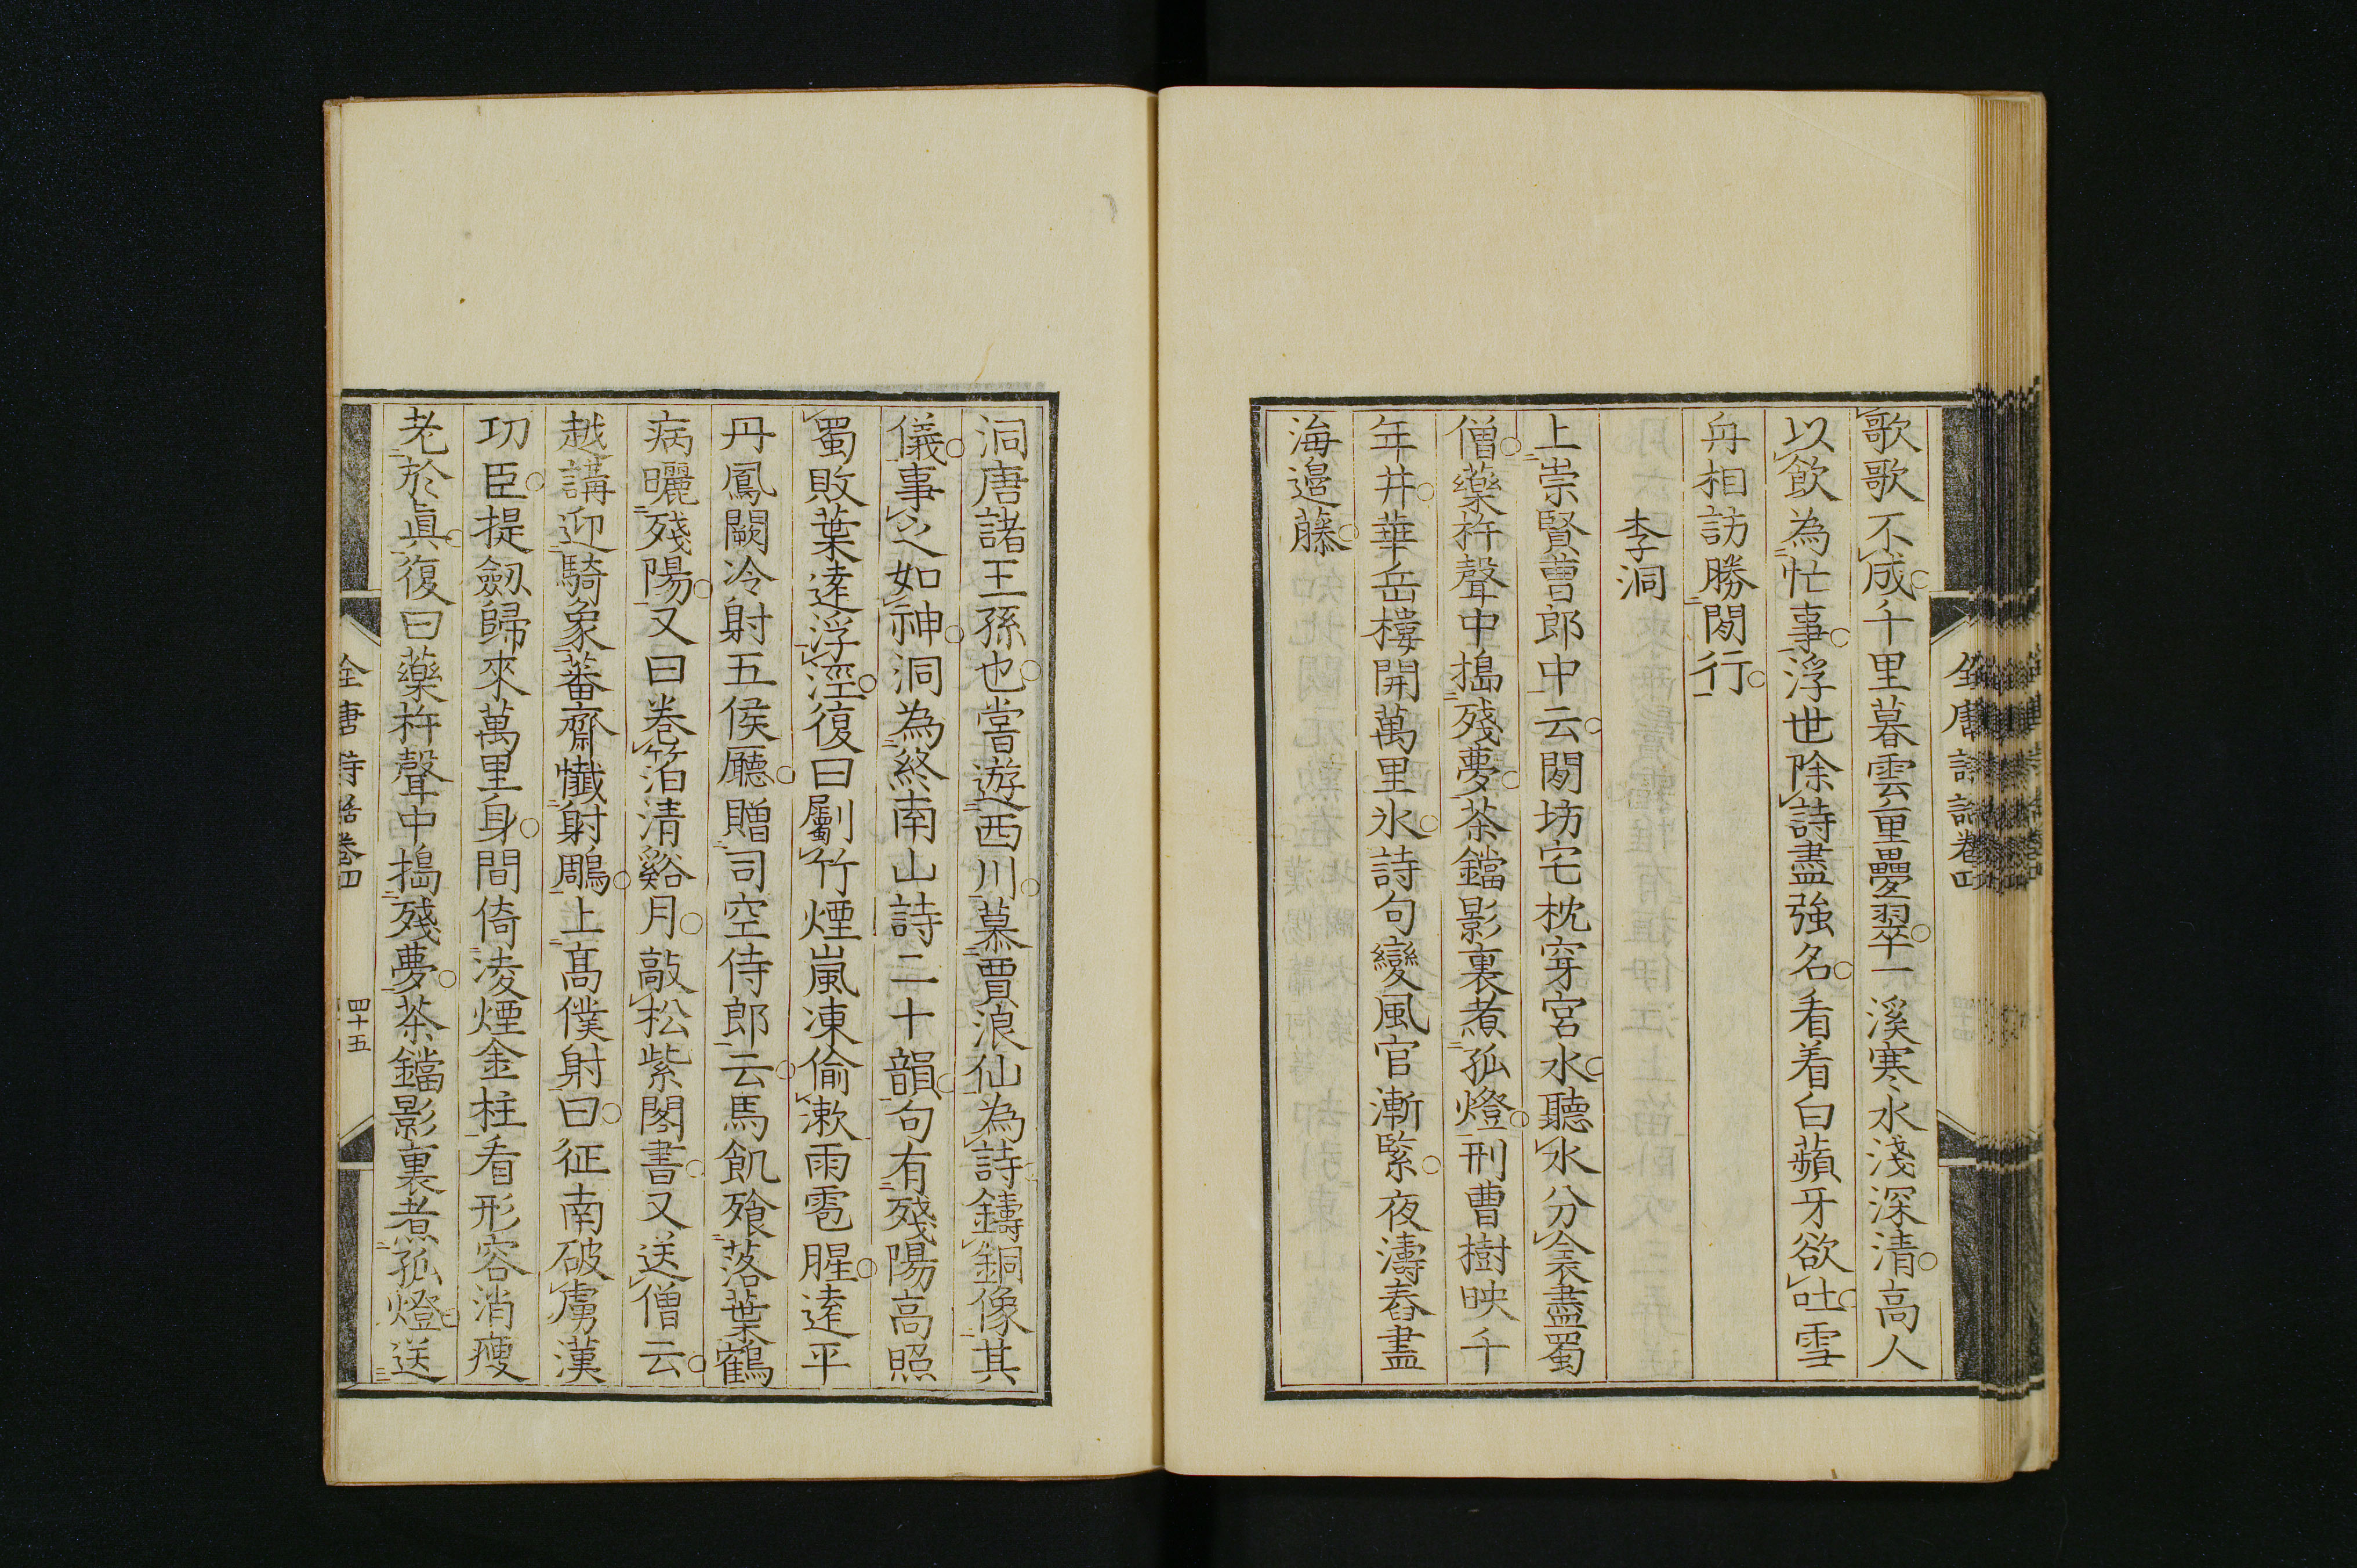 歌歌不成千里暮雲重疊翠一溪寒水淺深清高人
以飲為忙事浮世除詩盡強名看着白蘋牙欲吐雪
舟相訪勝閒行
李洞
上崇賢曹郎中云閒坊宅枕穿宮水聽水分衾盡蜀
僧藥杵聲中搗殘夢茶鐺影裏煮孤燈刑曹樹映千
年井華岳樓開萬里氷詩句變風官漸緊夜濤舂盡
海邊藤
洞唐諸王孫也嘗遊西川慕賈浪仙為詩鑄銅像其
儀事之如神洞為終南山詩二十韻句有殘陽高照
蜀敗葉逺浮涇復曰劚竹煙嵐凍偷漱雨雹腥逺平
丹鳳闕冷射五侯廳贈司空侍郎云馬飢飡落葉鶴
病曬殘陽又曰卷箔清谿月敲松紫閣書又送僧云
越講迎騎象蕃齋懺射鵰上髙僕射曰征南破虜漢
功臣提劔歸來萬里身閒倚淩煙金柱看形容消瘦
老於眞復曰藥杵聲中搗殘夢茶鐺影裏煮孤燈送
全唐詩話卷四
四十五